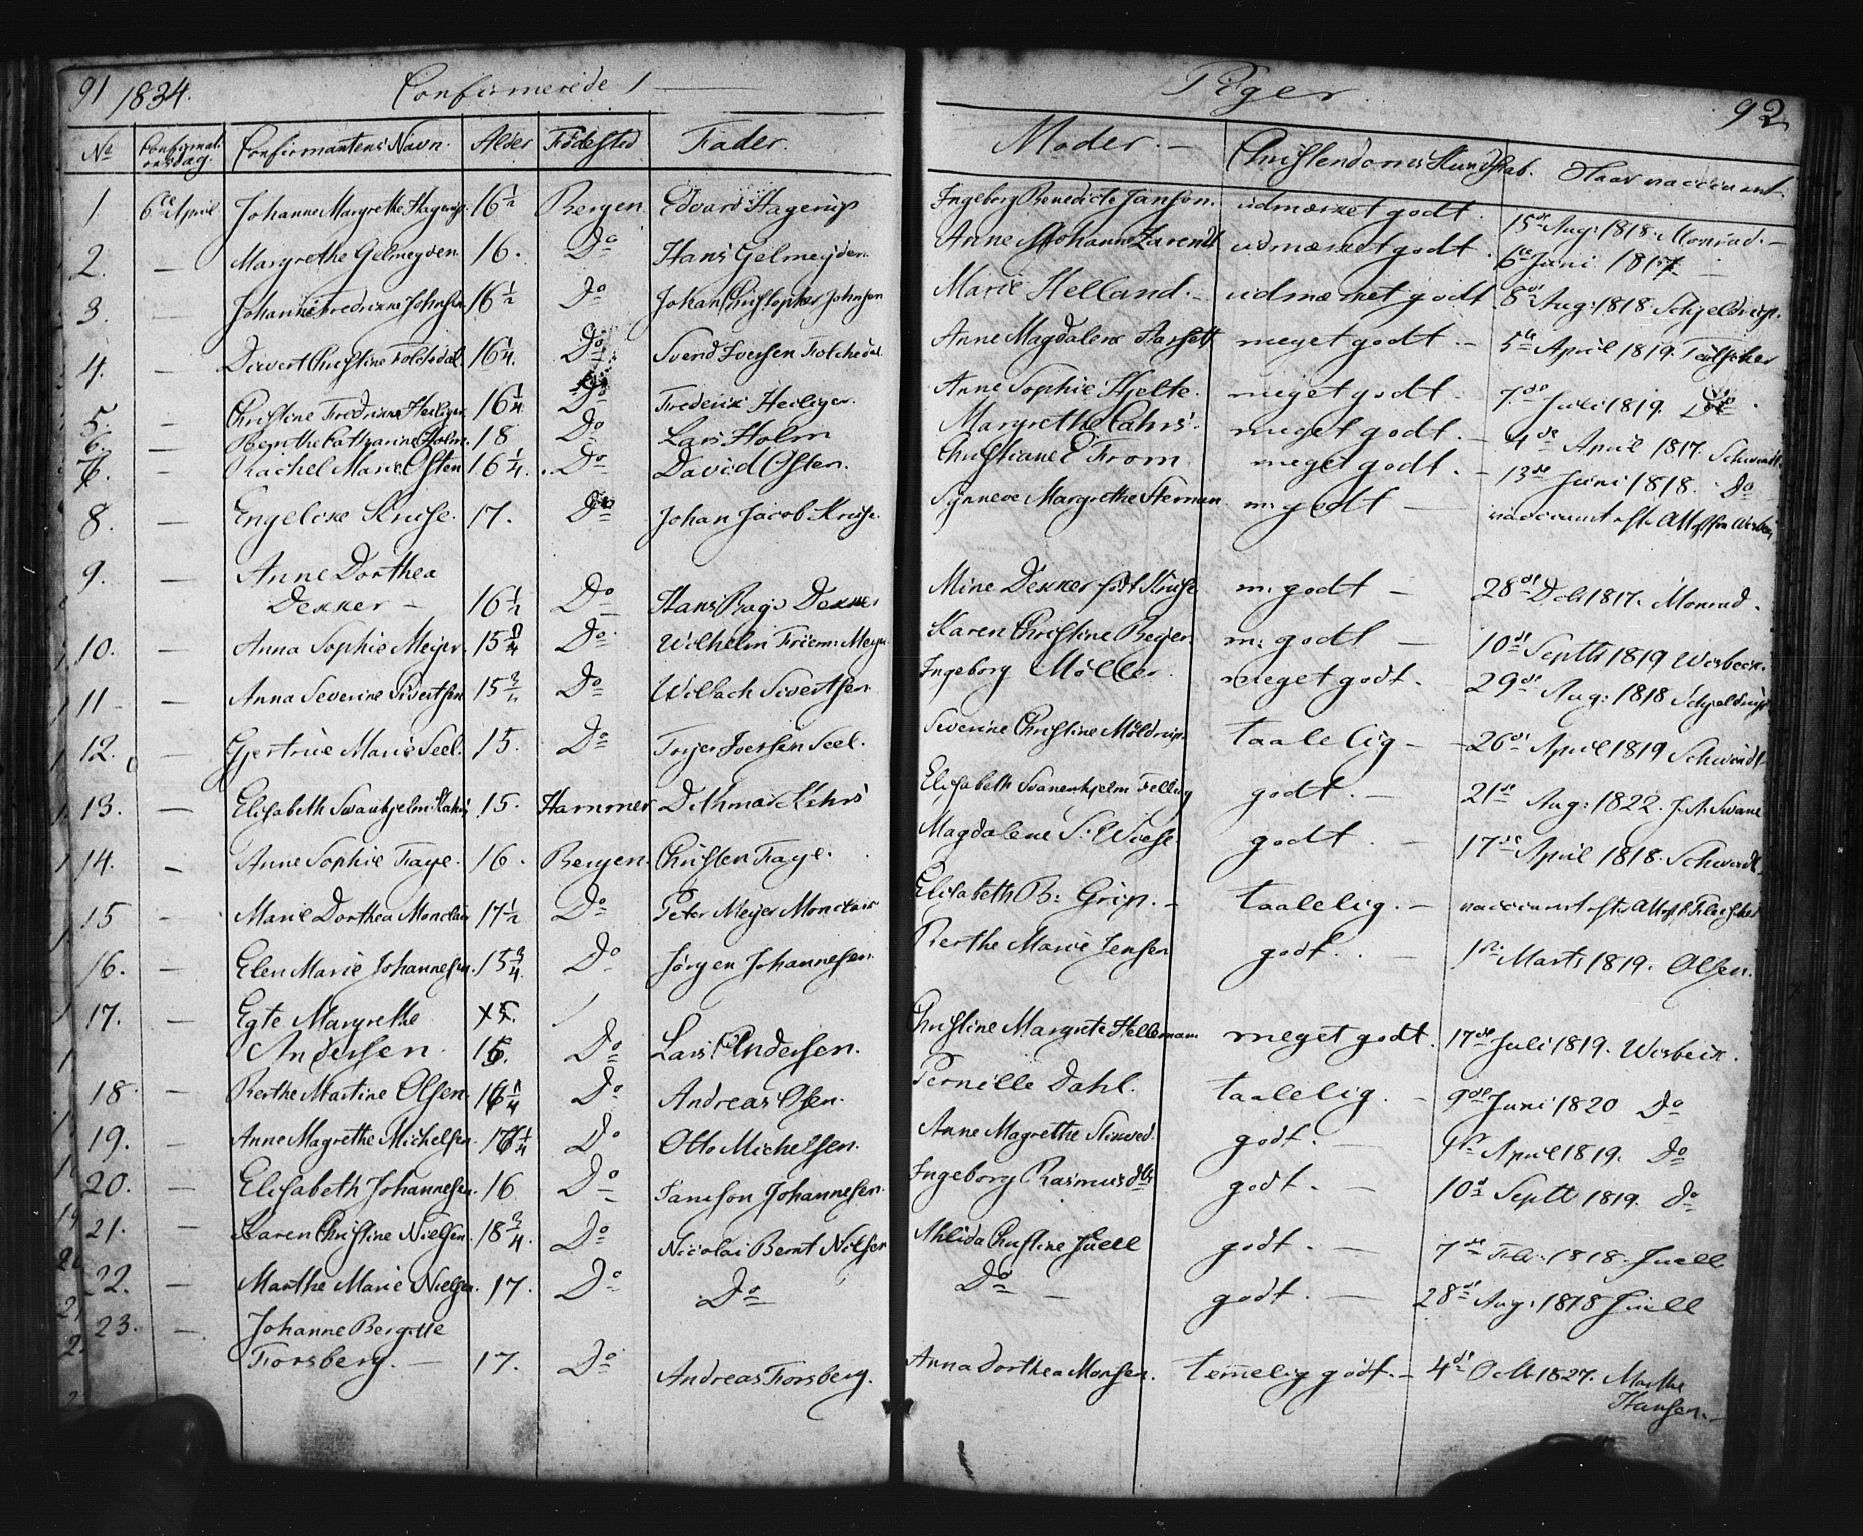 91 1834. Confirmerede Piger 92
No Confirmationsdag. Confirmantens Navn. Alder Fødested Fader. Moder. Christendoms Kundskab. Naar vaccineret
1. 6te April Johanne Margrethe Hagerup 16½ Bergen Edvard Hagerup Ingeborg Benedicte Janson. udmærket godt. 15de Aug: 1818. Monrad.
2. — Margrethe Gelmeyden 16. Do Hans Gelmeyden. Anne Johanne udmærket godt. 6te Juni 1817
3. — Johanne Fredrikke Johnsen 16½ Do Johan Christopher Johnsen Marie Helland. udmærket godt. 8de Aug: 1818. Schjeldrup.
4. — Christine Folchedal 16¼. Do Svend Iversen Folchedal Anne Magdalene meget godt. 5te April 1819.
5. — Christine Fredrikke Heiliger 16¼ Do Frederik Heiliger. Anne Sophie Hjelte. meget godt. 7de Juli 1819. Do
6. — Berthe Catharine Holm. 18 Do Lars Holm Margrethe Cahrs. meget godt. 4de April 1817. Schwindt
— Rachel Marie Osten 16¼. Do David Osten. Christiane E From meget godt. 13de Juni 1818. Do
8. — Engelche Kruse. 17. Do Johan Jacob Kruse. Synneve Margrethe m: godt — vaccineret efter Attest fra Wisbech
9. — Anne Dorthea
Dekker — 16½ Do Hans Dekker Mine Dekker født Kruse m: godt — 28de 1817. Monrad.
10. — Anna Sophie Meyer. 15¾ Do Wilhelm Meyer Karen Christine Beyer. m: godt — 10de Septbr 1819 Wisbech.
11 — Anna Severine Sivertsen 15 Do Wollach Sivertsen. Ingeborg Møller. meget godt. 29de Aug: 1818 Schjeldrup
12. — Gjertrue Marie Seel. 15. Do Iversen Seel. Severine Christine Møldrup. taalelig — 26de April 1819 Schwindt
13. — Elisabeth Swanhjelm Kahrs 15. Hammer Dithmar Kahrs Elisabeth Svanenhjelm godt. — 21de Aug: 1822.
14. — Anne Sophie Faye. 16. Bergen. Christen Faye. Magdalene S: Wiese godt. — 17de April 1818. Schwindt
15 — Marie Dorthea Monclair 17½ Do Peter Meyer Monclair Elisabeth B: Grip. — taalelig. — vaccineret efter Attest fra Fleischer
16. — Elen Marie Johannesen. 15¾ Do Jørgen Johannesen. Berthe Marie Jensen godt. — 1ste Marts 1819. Olsen.
17. — Egte Margrethe
Andersen. 15. Do Lars Andersen. Christine Margrete Hellemann meget godt. 17de Juli 1819. Wisbech.
18. — Berthe Martine Olsen. 16¼ Do Andreas Olsen. Pernille Dahl. taalelig. — 9de Juni 1820 Do
19. — Anne Magrethe Michelsen. Do Otto Michelsen. Anne Magrethe godt. — 1ste April 1819. Do
20. — Elisabeth Johannesen. 16 Do Samson Johannesen. Ingeborg Rasmusdtr godt. — 10de Septbr 1819. Do
21. — Karen Christine Nielsen. 18¾. Do Nicolai Bernt Nilsen Ahlida Christine Juell godt. — 7de Febr: 1818. Juell
22. — Marthe Marie Nielsen. 17. Do Do Do — godt. — 28de Aug: 1818 Juell
23. — Johanne Bergitte
Forsberg. — 17. Do Andreas Forsberg. Anna Dorthea Monsen. temmelig godt. — 4de Octbr 1827. Marthe
Hansen. —